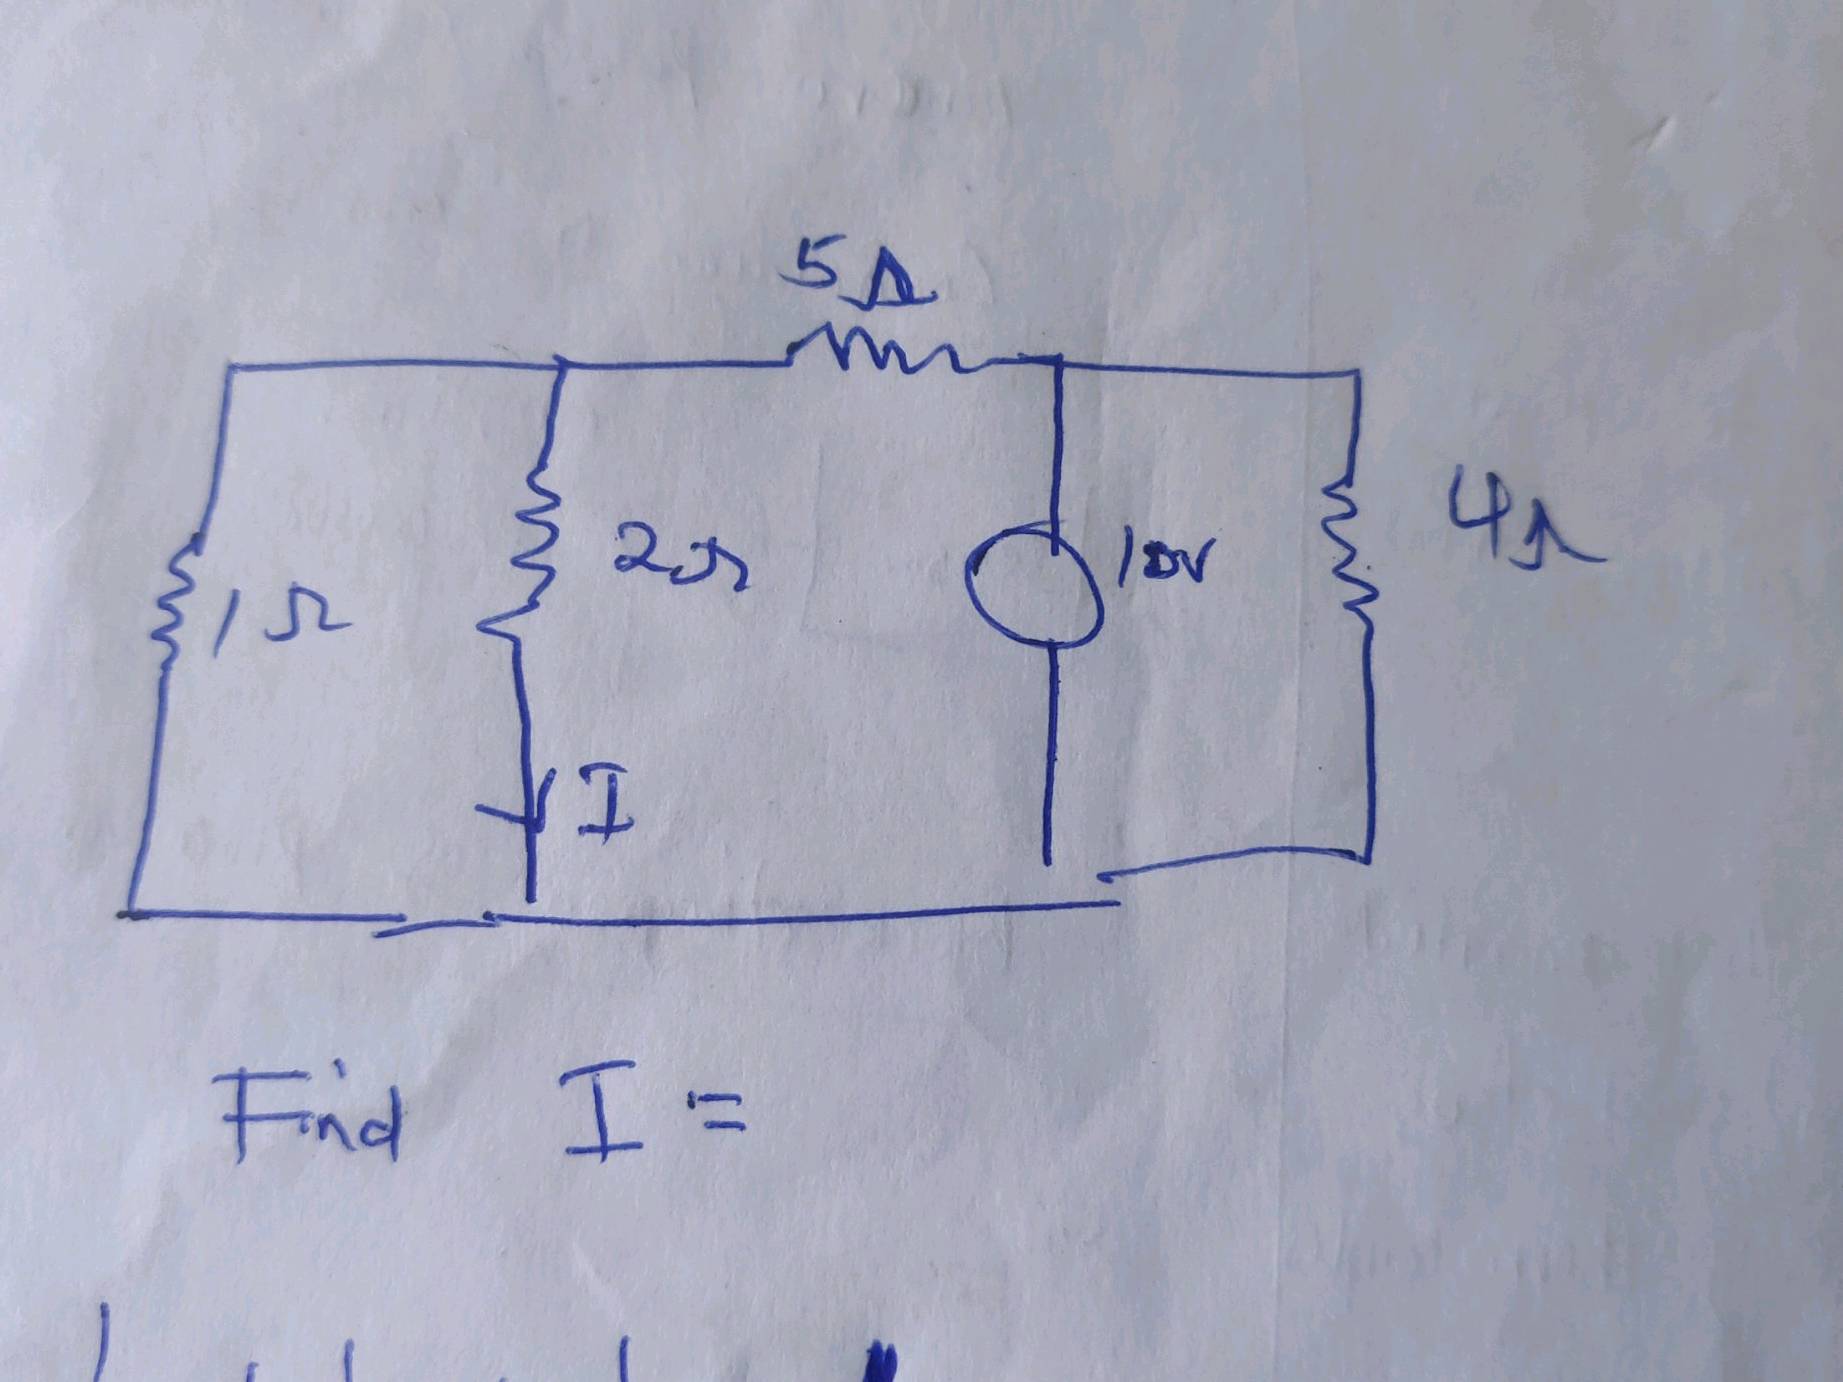 5Ω
1Ω
2Ω
10V
4Ω
I
Find I =